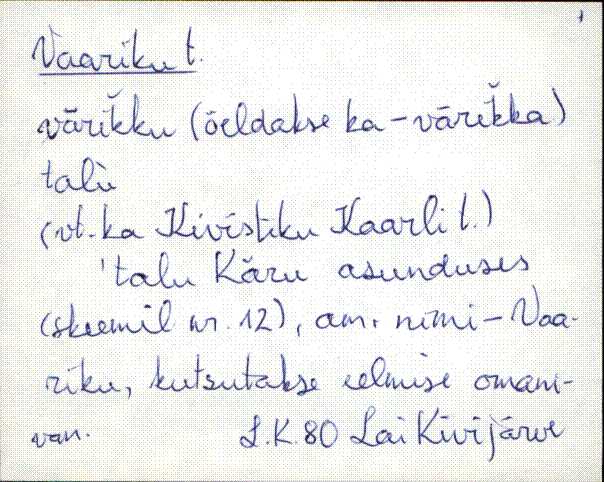 1
Vaariku t.
vārik̆ku (öeldakse ka – vārik̆ka)
talù
(vt. ka Kivistiku Kaarli t.)
'talu Käru asunduses
(skeemil nr. 12), am. nimi – Vaa-
riku, kutsutakse eelmise omani-
L.K.80 Lai Kivijärve